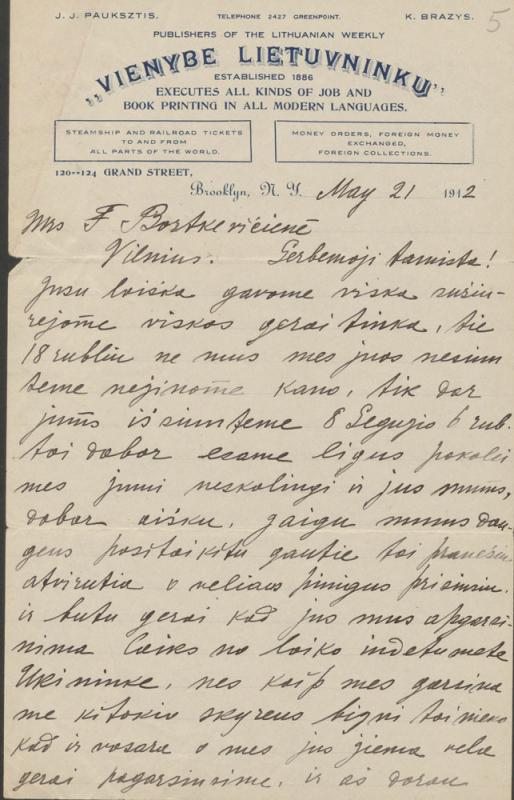 J. J. PAUKSZTIS. TELEPHONE 2427 GREENPOINT. K. BRAZYS. 5
PUBLISHERS OF THE LITHUANIAN WEEKLY
„VIENYBE LIETUVNINKU”
ESTABLISHED 1886
EXECUTES ALL KINDS OF JOB AND
BOOK PRINTING IN ALL MODERN LANGUAGES.
STEAMSHIP AND RAILROAD TICKETS
TO AND FROM
ALL PARTS OF THE WORLD.
MONEY ORDERS, FOREIGN MONEY
EXCHANGED,
FOREIGN COLLECTIONS.
120--124 GRAND STREET,
Brooklyn, N. Y. May 21 1912
Mrs F Bortkevičienė
Vilnius. Gerbemoji tamista!
Jusu laiška gavome viska sužiu-
rejome viskas gerai tinka, tie
18 rubliu ne mus mes juos nesiun
teme nežinome kano, tik dar
jums išsiunteme 8 Gegužio 6 rub.
tai dabar esame ligus pakolei
mes jumi neskolingi ir jus mums,
dabar aišku, jaigu mums dau-
geus pasitaikitu gautie tai pranešiu
atvirutia o veliaus pinigus priemsiu.
ir butu gerai kad jus mus apgarsi-
nima laiks no laiko indetumete
Ukininke, nes kaip mes garsina
me kitokiu skyreus bigni tai meno
kad ir vasara o mes jus žiema vela
gerai pagarsinsime. ir aš darau